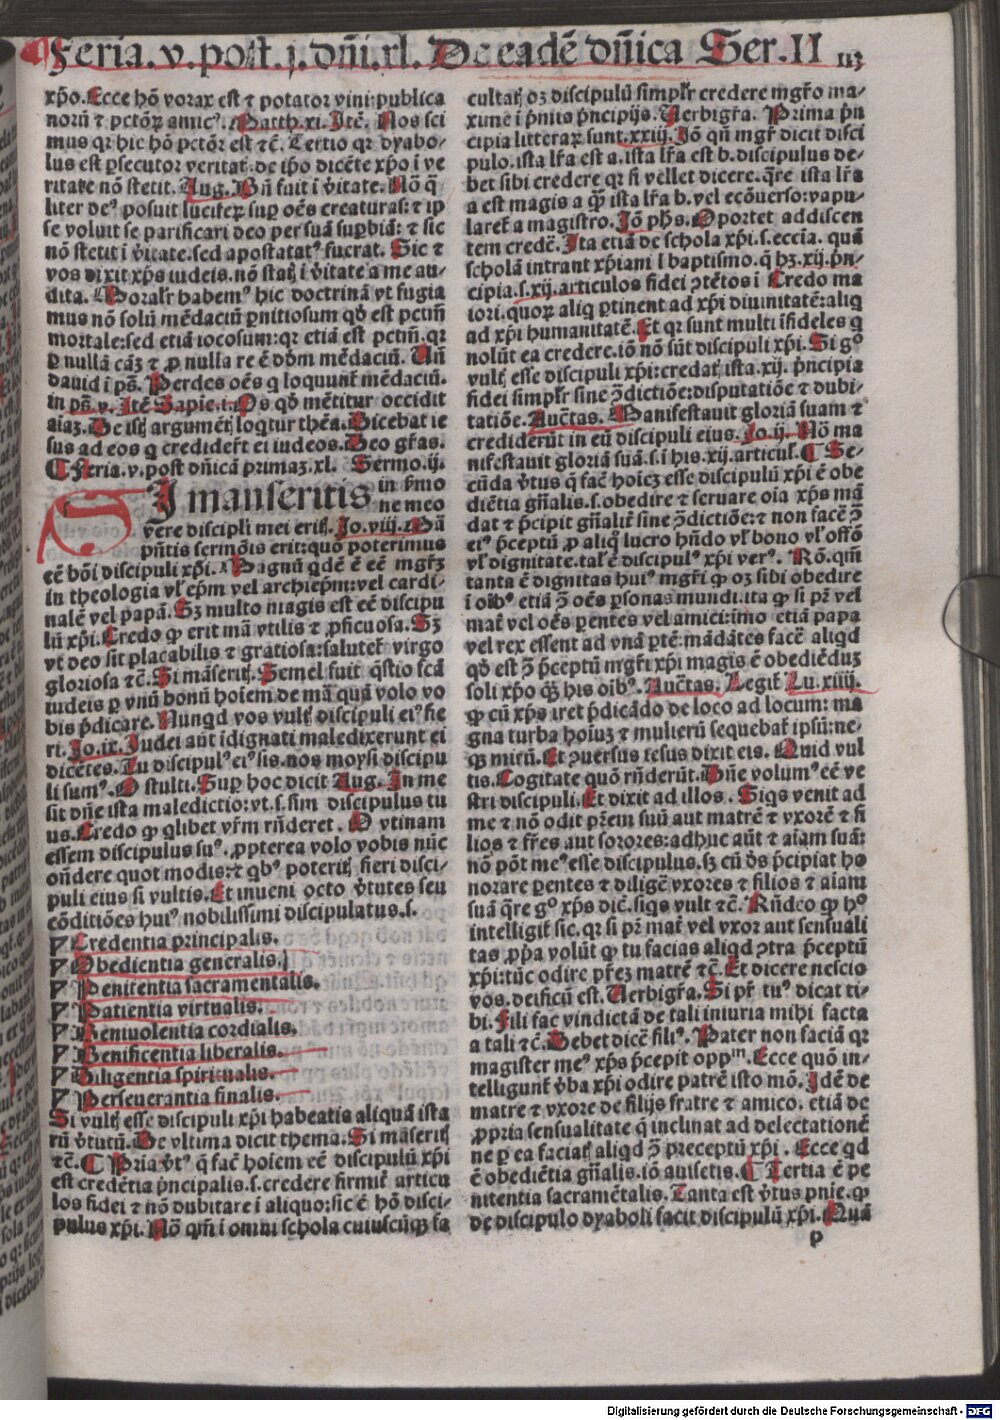 Feria. v. post. j. dñi. xl. De eadē dñica Ser. II 113
xp̄o. Ecce hō vorax est ⁊ potator vini: publica
norū ⁊ pctōꝝ amicꝰ. Matth. xi. Itē. Nos sci
mus qꝛ hic hō pctōr est ⁊c̄. Tertio qꝛ dyabo⸗
lus est ꝑsecutor veritatꝭ. de ip̄o dicēte xp̄o i ve
ritate nō stetit. Aug. Bn̄ fuit i v̄itate. Nō q̄
liter deꝰ posuit luciferꝝ suꝑ oēs creaturas: ⁊ ip
se voluit se parificari deo per suā suꝑbiā: ⁊ sic
nō stetit i v̄itate. sed apostatatꝰ fuerat. Sic ⁊
vos dixit xp̄s iudeis. nō statꝭ i v̄itate a me au⸗
dita. Moralr̄ habemꝰ hic doctrinā vt fugia
mus nō solū mēdaciū ꝑnitiosum qd̄ est pctm̄
mortale: sed etiā iocosum: qꝛ etiā est pctm̄. qꝛ
ꝑ nullā cāꝫ ⁊ ꝓ nulla re ē dd̄m mēdaciū. Un̄
dauid i ps̄. Perdes oēs q loquunt̄ mēdaciū.
in ps̄. v. Itē Sapie. i. Os qd̄ mētitur occidit
aiaꝫ. De istꝭ argumētꝭ loqtur thēa. Dicebat ie
sus ad eos q credidert̄ ei iudeos. Deo gr̄as.
¶ Feria. v. post dn̄icā primaꝫ. xl. Sermo. ij.
SI manseritis in s̄mo
ne meo
vere discipl̓i mei eritꝭ. Jo. viij. Bn̄
pn̄tis sermōis erit: quō poterimus
eē bōi discipuli xp̄i. Magnū qdē ē eē mgr̄ꝫ
in theologia vl̓ ep̄m vel archiep̄m: vel cardi⸗
nalē vel papā. Sꝫ multo magis est eē discipu
lū xp̄i. Credo ꝙ erit mā vtilis ⁊ ꝓficuosa. Sꝫ
vt deo sit placabilis ⁊ gratiosa: salutet̄ virgo
gloriosa ⁊c̄. Si māseritꝭ. Semel fuit q̄stio fcā
iudeis ꝑ vnū bonū hoiem de mā quā volo vo
bis p̄dicare. Nunqd vos vultꝭ discipuli eiꝰ fie
ri. Jo. ix. Judei aūt idignati maledixerunt ei
dicētes. Tu discipulꝰ eiꝰ sis. nos moysi discipu
li sumꝰ. O stulti. Suꝑ hoc dicit Aug. In me
sit dn̄e ista maledictio: vt. s. sim discipulus tu
us. Credo ꝙ qlibet vr̄m rn̄deret. O vtinam
essem discipulus suꝰ. ꝓpterea volo vobis nūc
on̄dere quot modis: ⁊ qbꝰ poteritꝭ fieri disci⸗
puli eius si vultis. Et inueni octo v̄tutes seu
cōditiōes huiꝰ nobilissimi discipulatus. s.
Credentia principalis.
Obedientia generalis.
Penitentia sacramentalis.
Patientia virtualis.
Beniuolentia cordialis.
Benificentia liberalis.
Diligentia spiritualis.
Perseuerantia finalis.
Si vultꝭ esse discipuli xp̄i habeatis aliquā ista
rū v̄tutū. De vltima dicit thema. Si māseritꝭ
⁊c̄. ¶ Pria v̄tꝰ q̄ fac̄ hoiem eē discipulū xp̄i
est credētia p̄ncipalis. s. credere firmit̄ articu
los fidei ⁊ nō dubitare i aliquo: sic ē hō disci⸗
pulus xp̄i. Nō qm̄ i omni schola cuiuscūqꝫ fa
cultatꝭ oꝫ discipulū simplr̄ credere mgr̄o ma⸗
xime i p̄nita p̄ncipijs. Uerbigr̄a. Prima p̄n
cipia litteraꝝ sunt. xxiij. Iō qn̄ mgr̄ dicit disci
pulo. ista lr̄a est a. ista lr̄a est b. discipulus de⸗
bet sibi credere qꝛ si vellet dicere. qre ista lr̄a
a est magis a qꝫ ista lr̄a b. vel ecōuerso: vapu⸗
laret̄ a magistro. Iō ph̄s. Oportet addiscen
tem credē. Ita etiā de schola xp̄i. s. ecc̄ia. quā
scholā intrant xp̄iani i baptismo. q̄ hꝫ. xij. p̄n⸗
cipia. s. xij. articulos fidei ꝯtētos i Credo ma
iori. quoꝝ aliq ꝑtinent ad xp̄i diuinitatē: aliq
ad xp̄i humanitatē. Et qꝛ sunt multi ifideles q
nolūt ea credere. iō nō sūt discipuli xp̄i. Si gº
vultꝭ esse discipuli xp̄i: credatꝭ ista. xij. p̄ncipia
fidei simplr̄ sine ꝯdictiōe: disputatiōe ⁊ dubi⸗
tatiōe. Auctꝭas. Manifestauit gloriā suam ⁊
crediderūt in eū discipuli eius. Jo. ij. Nō ma
nifestauit gloriā suā. s. i his. xij. articul̓. ¶ Se⸗
cūda v̄tus q̄ fac̄ hoieꝫ esse discipulū xp̄i ē obe
diētia gn̄alis. s. obedire ⁊ seruare oīa xp̄s mā
dat ⁊ p̄cipit gn̄alit̄ sine ꝯdictiōe: ⁊ non facē ꝯ
eiꝰ p̄ceptū ꝓ aliq lucro hn̄do vl̓ bono vl̓ offō
vl̓ dignitate. tal̓ ē discipulꝰ xp̄i verꝰ. Rō. qm̄
tanta ē dignitas huiꝰ mgr̄i ꝙ oꝫ sibi obedire
i oībꝰ etiā ꝯ oēs ꝑsonas mundi. ita ꝙ si pr̄ vel
mat̄ vel oēs ꝑentes vel amici: imo etiā papa
vel rex essent ad vnā ꝑtē: mādātes facē aliqd
qd̄ est ꝯ p̄ceptū mgr̄i xp̄i magis ē obediēduꝫ
soli xp̄o qꝫ his oibꝰ. Auctꝭas. Legit̄ Lu. xiiij.
ꝙ cū xp̄s iret p̄dicādo de loco ad locum: ma
gna turba hoiuꝫ ⁊ mulierū sequebat̄ ipsū: ne⸗
qꝫ mirū. Et ꝯuersus iesus dixit eis. Quid vul
tis. Cogitate quō rn̄derūt. Dn̄e volumꝰ eē ve
stri discipuli. Et dixit ad illos. Siqs venit ad
me ⁊ nō odit pr̄em suū aut matrē ⁊ vxorē ⁊ fi
lios ⁊ fr̄es aut sorores: adhuc aūt ⁊ aīam suā:
nō pōt meꝰ esse discipulus. sꝫ cū de̓s p̄cipiat ho
norare ꝑentes ⁊ diligē vxores ⁊ filios ⁊ aiam
suā q̄re gº xp̄s dic̄. siqs vult ⁊c̄. Rn̄deo ꝙ hº
intelligit̄ sic. qꝛ si pr̄ mat̄ vel vxor aut sensuali
tas ꝓpa volūt ꝙ tu facias aliqd ꝯtra p̄ceptū
xp̄i: tūc odire pr̄eꝫ matrē ⁊c̄. Et dicere nescio
vos. deificū est. Uerbigr̄a. Si pr̄ tuꝰ dicat ti⸗
bi. Fili fac vindictā de tali iniuria mihi facta
a tali ⁊c̄. Debet dicē filiꝰ. Pater non faciā qꝛ
magister meꝰ xp̄s p̄cepit oppᵐ. Ecce quō in⸗
telligunt̄ v̄ba xp̄i odire patrē isto mō. Idē de
matre ⁊ vxore de filijs fratre ⁊ amico. etiā de
ꝓpria sensualitate q̄ inclinat ad delectationē
ne ꝑ ea faciatꝭ aliqd ꝯ preceptū xp̄i. Ecce qd
ē obediētia gn̄alis. iō auisetis. ¶ Tertia ē pe
nitentia sacramētalis. Tanta est v̄tus pnie. ꝙ
de discipulo dyaboli facit discipulū xp̄i. Quā
p
Digitalisierung gefördert durch die Deutsche Forschungsgemeinschaft - DFG